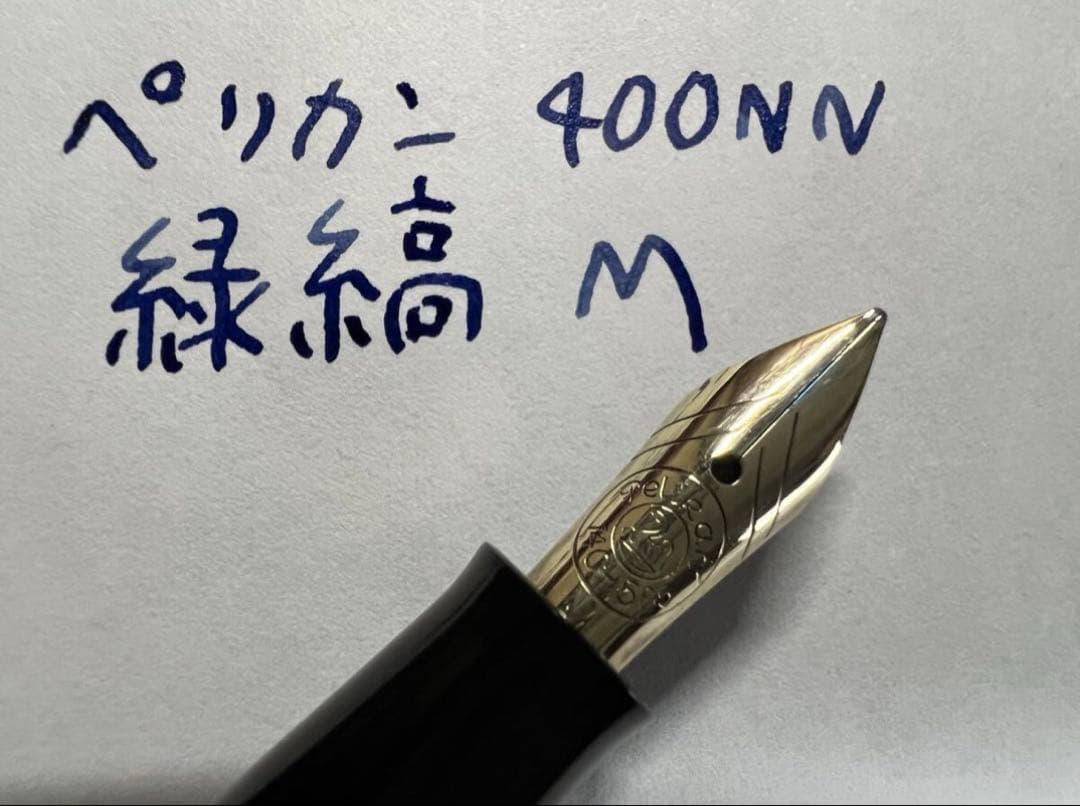 ペリカン 400NN
緑縞 M
Pelikan
14 Karat
M